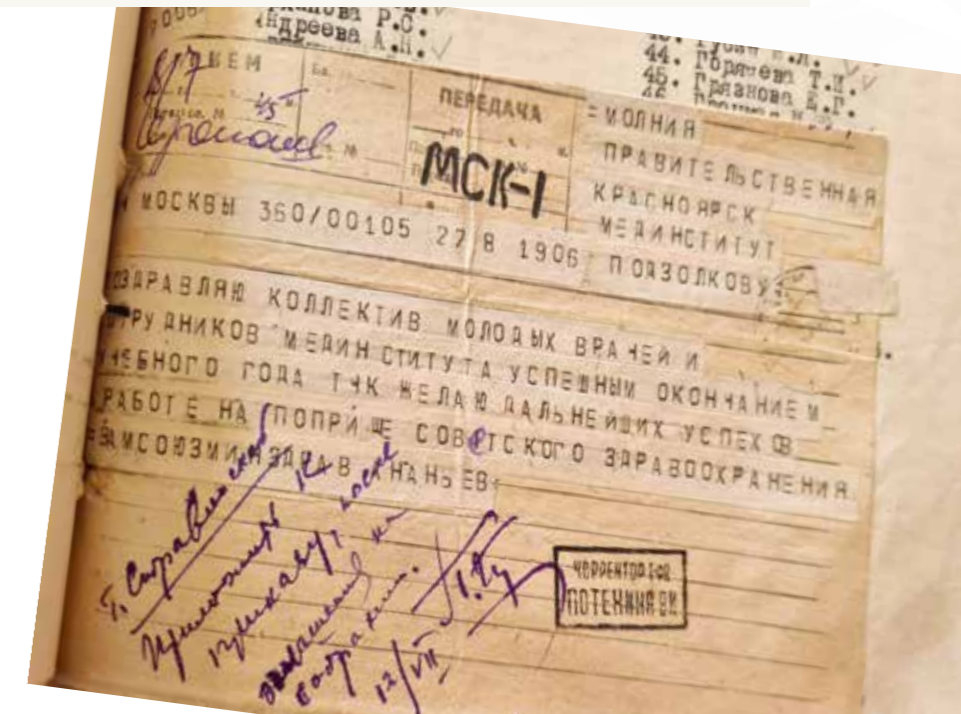 Андреева А.Н.
44. Горячева Т.И.
45. Грязнова Е.Г.
46.
ПРИЕМ
ПЕРЕДАЧА
МСК-1
=МОЛНИЯ
ПРАВИТЕЛЬСТВЕННАЯ
КРАСНОЯРСК
МЕДИНСТИТУТ
ПОДЗОЛКОВУ=
МОСКВЫ 360/00105 27 8 1906
ПОЗДРАВЛЯЮ КОЛЛЕКТИВ МОЛОДЫХ ВРАЧЕЙ И
СОТРУДНИКОВ МЕДИНСТИТУТА УСПЕШНЫМ ОКОНЧАНИЕМ
УЧЕБНОГО ГОДА ТЧК ЖЕЛАЮ ДАЛЬНЕЙШИХ УСПЕХОВ
РАБОТЕ НА ПОПРИЩЕ СОВЕТСКОГО ЗДРАВООХРАНЕНИЯ
=ЗАМСОЮЗМИНЗДРАВ АНАНЬЕВ
Приложить к
приказу, после
собрании.
12/VII
ПОТЕХИНА